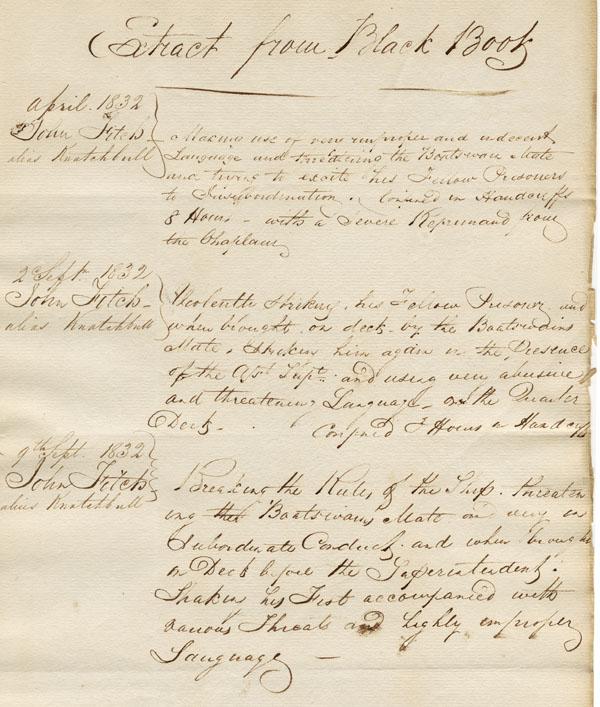 Extract from Black Book
April. 1832
John Fitch
alias Knatchbull
Making use of very improper and indecent
Language and threatening the Boatswain Mate
and trying to excite his Fellow Prisoners
to Insubordination. Confined in Handcuffs
8 Hours - with a Severe Reprimand from
the Chaplain
2d Sept. 1832
John Fitch -
alias Knatchbull
Violently striking his Fellow Prisoner and
when brought on deck by the Boatswains
Mate, Striking him again in the Presence
of the Asst. Supt. and using very abusive
and threatening Language on the Quarter
Deck - Confined Hours in Handcuffs
9th Sept. 1832
John Fitch
alias Knatchbull
Breaking the Rules of the Ship. threaten
ing the Boatswains Mate and very in
Subordinate Conduct. and when brought
on Deck before the Superintendent.
Shaking his Fist accompanied with
various Threats and highly improper
Language —